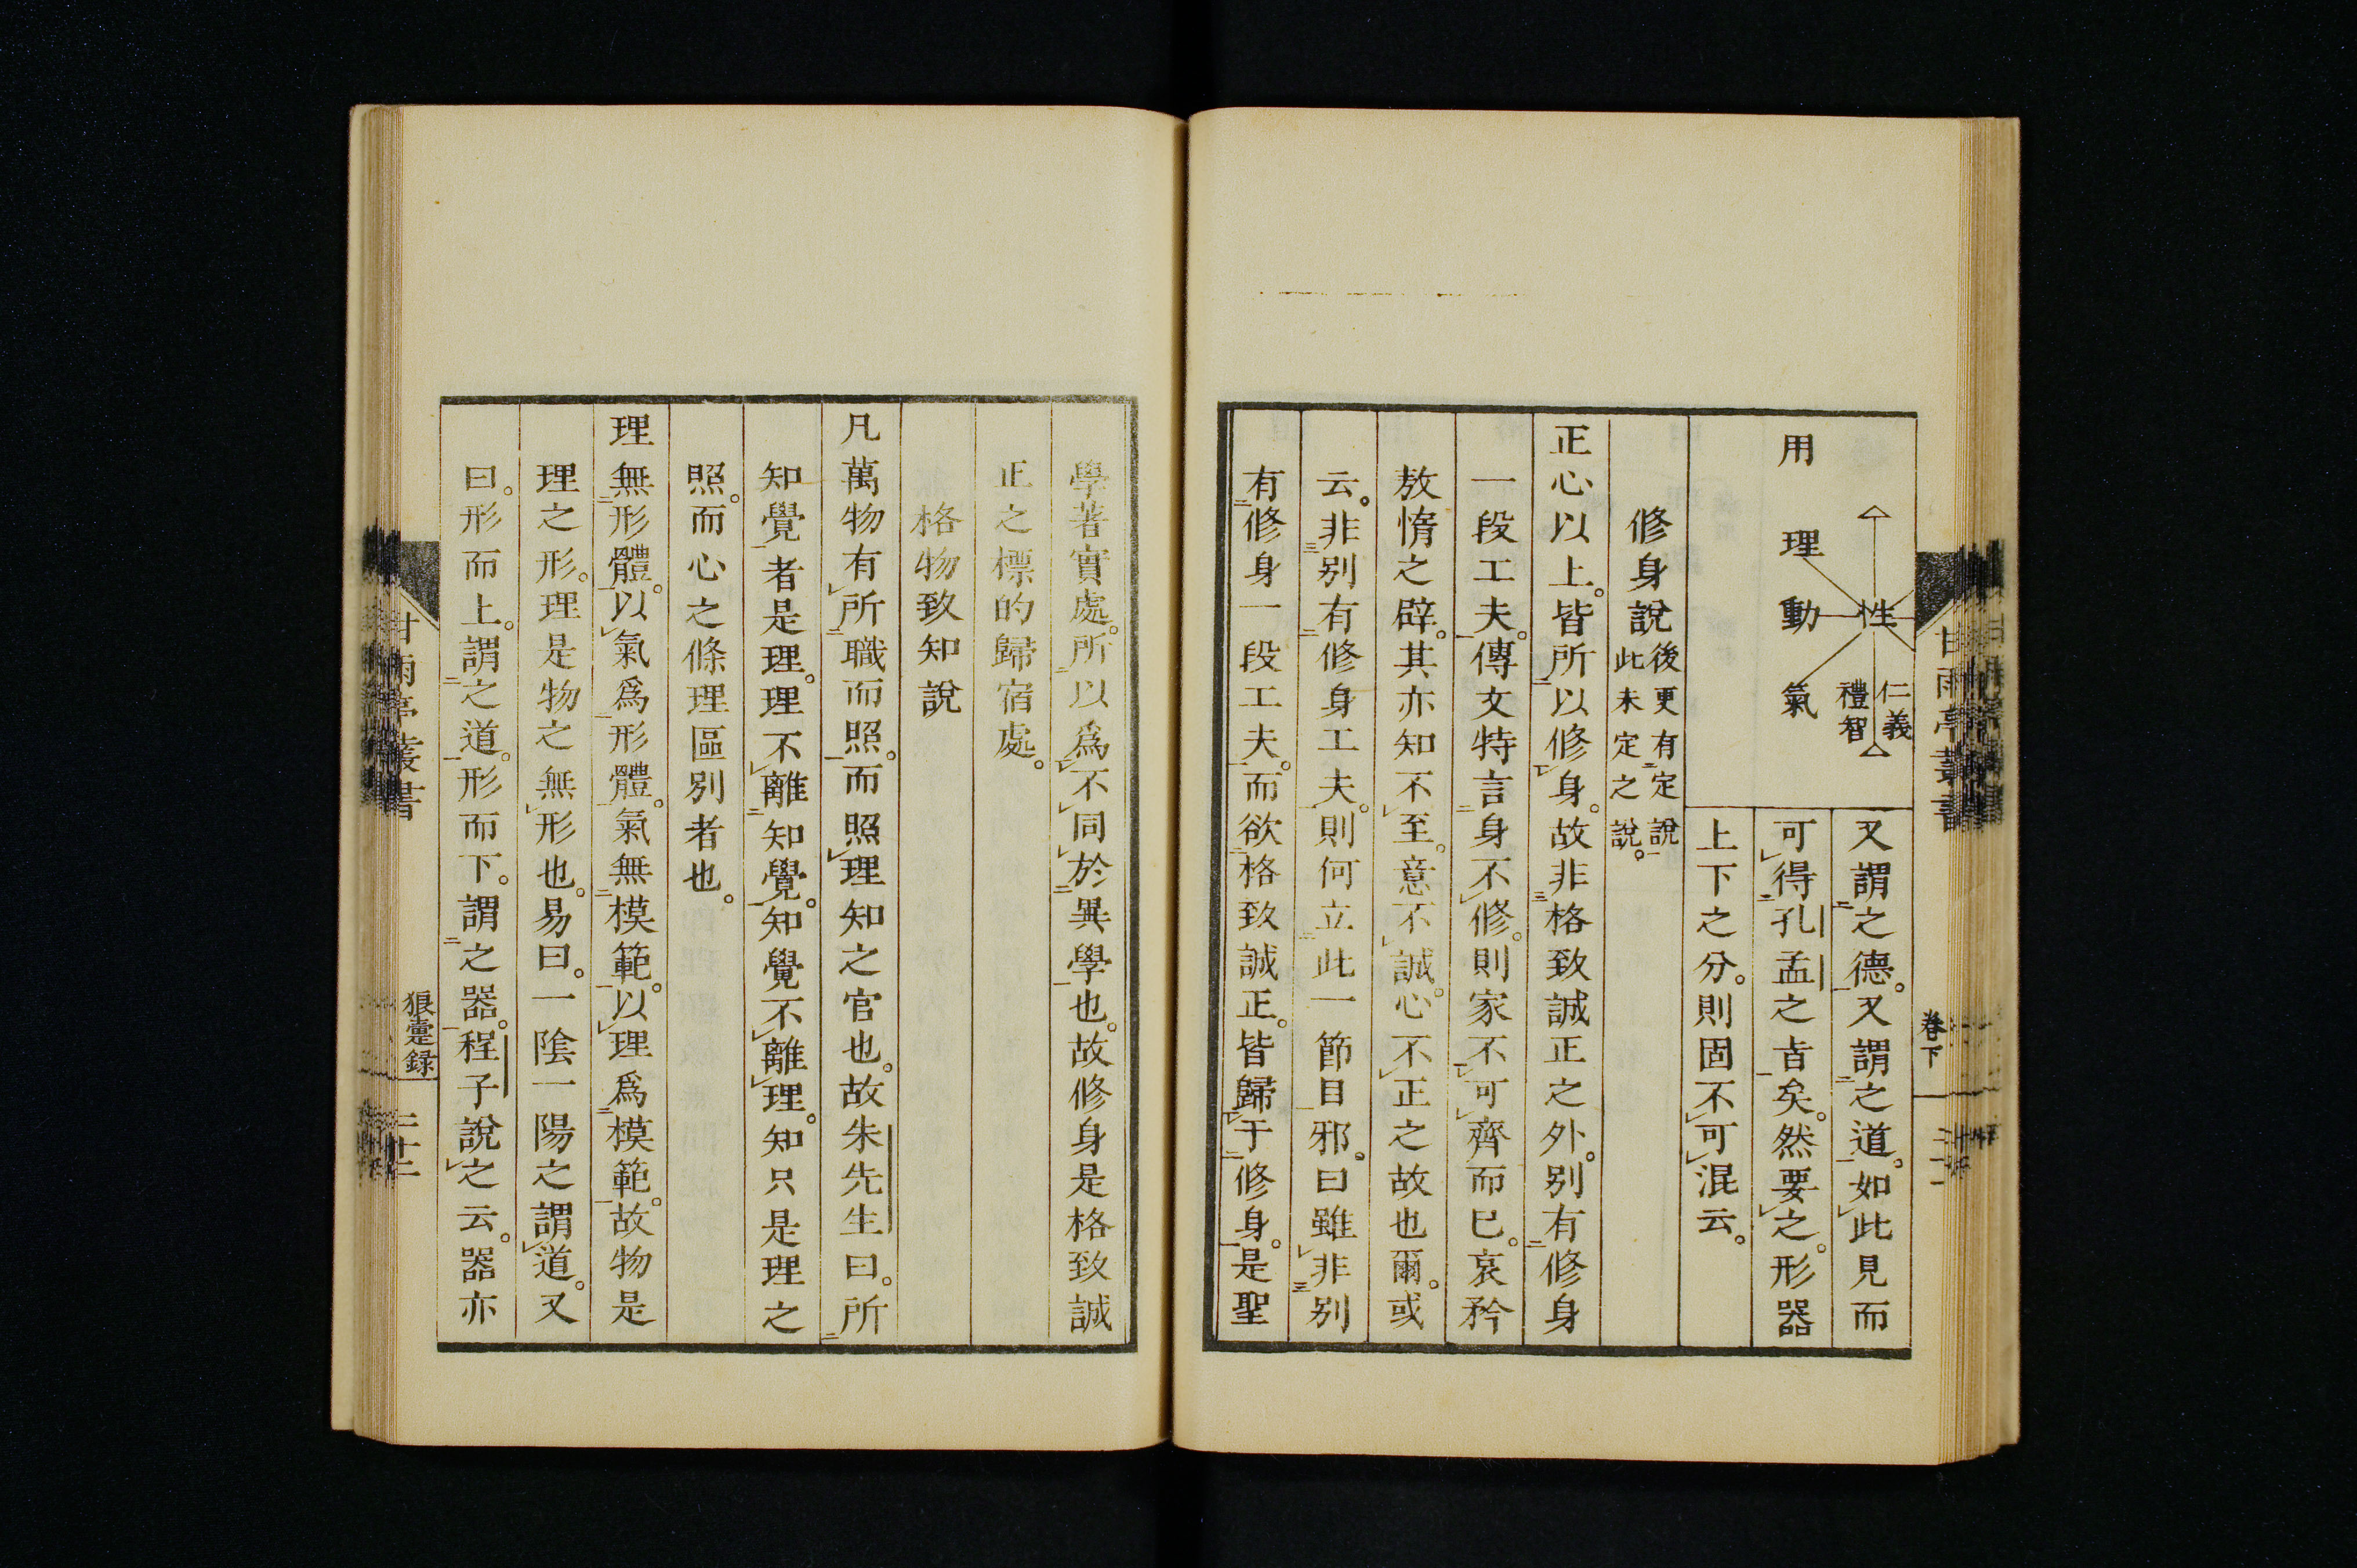 甘雨亭叢書
卷下
性
仁義
禮智
用
理
動
氣
又謂之德。又謂之道。如此見而
可得孔孟之旨矣。然要之。形器
上下之分。則固不可混云。
修身說
後更有定說
此未定之說。
正心以上。皆所以修身。故非格致誠正之外。別有修身
一段工夫。傳文特言身不修。則家不可齊而已。哀矜
敖惰之辟。其亦知不至。意不誠。心不正之故也爾。或
云。非別有修身工夫。則何立此一節目邪。曰雖非別
有修身一段工夫。而欲格致誠正。皆歸于修身。是聖
學著實處。所以爲不同於異學也。故修身是格致誠
正之標的歸宿處。
格物致知說
凡萬物有所職而照。而照理知之官也。故朱先生曰。所
知覺者是理。理不離知覺。知覺不離理。知只是理之
照。而心之條理區別者也。
理無形體。以氣爲形體。氣無模範。以理爲模範。故物是
理之形。理是物之無形也。易曰。一陰一陽之謂道。又
曰。形而上。謂之道。形而下。謂之器。程子說之云。器亦
甘雨亭叢書
狼疐録
二十二